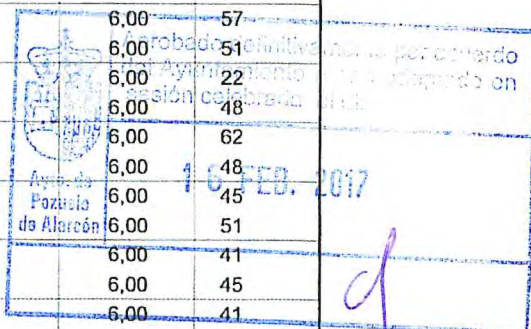 6,00 57
6,00 51
6,00 22
6,00 48
6,00 62
6,00 48
6,00 45
6,00 51
6,00 41
6,00 45
6,00 41
Aprobado definitivamente por acuerdo
del Ayuntamiento adoptado en
sesión celebrada el
16 FEB. 2017
Ayto. de
Pozuelo
de Alarcón